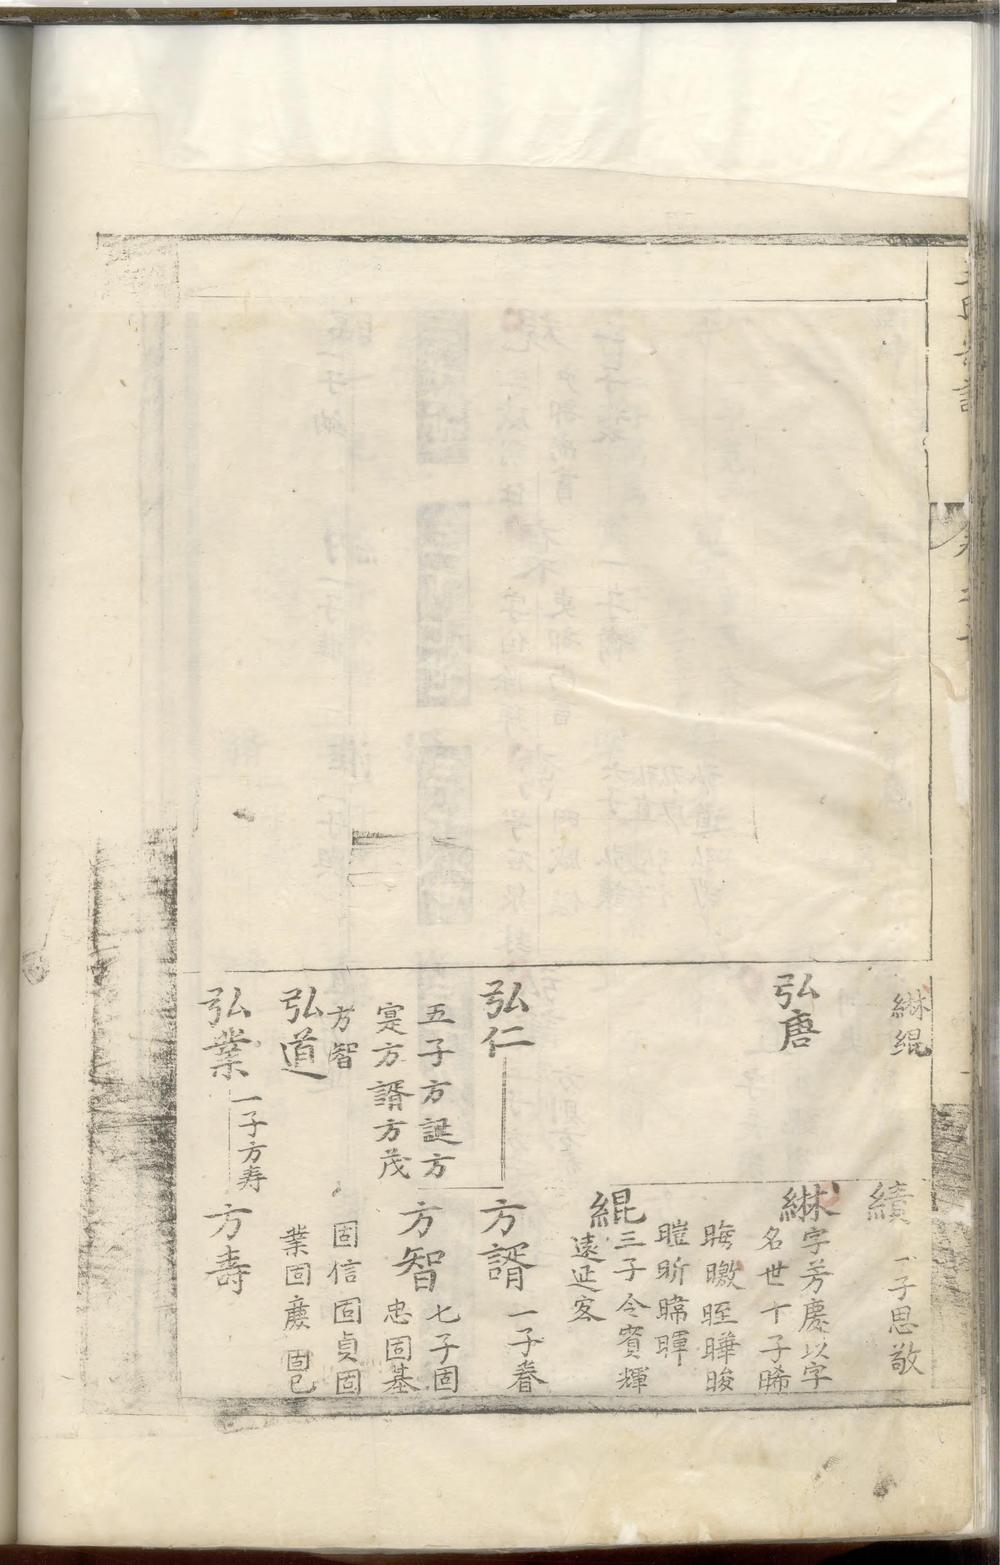 綝緄
弘唐
弘仁
五子方誕方
寔方謂方茂
方智
弘道
弘業
一子方寿
績
一子思敬
綝
字芳慶以字
名世十子晞
晦曒晊曄晙
暟昕暐暉
緄
三子令賓輝
遠延客
方謂
一子眷
方智
七子固
忠固基
固信固貞固
業固慶固己
方壽